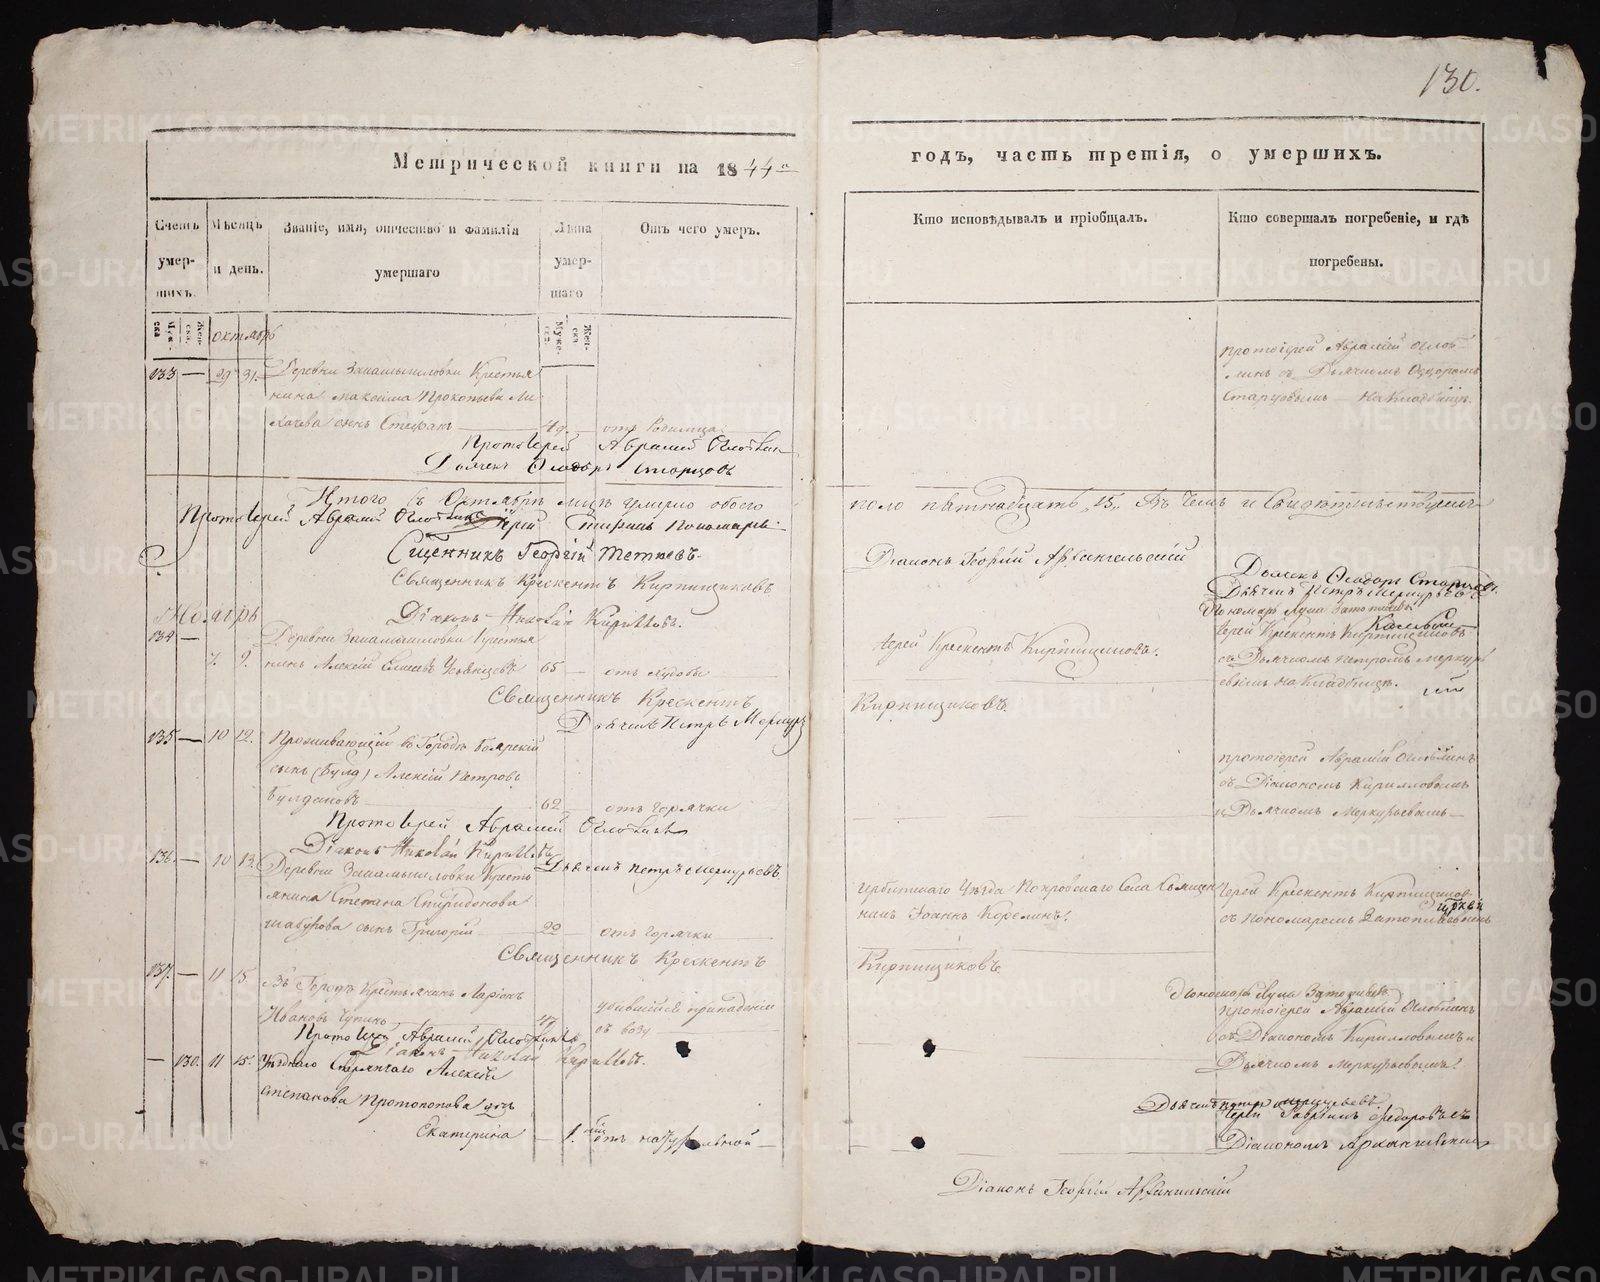 130.
Метрической книги на 1844й
годъ, часть третія, о умершихъ.
Счетъ умер-шихъ.
Мѣсяцъ и день.
Званіе, имя, отчество и фамилія умершаго
Лѣта умер-шаго
Отъ чего умеръ.
Кто исповѣдывалъ и пріобщалъ.
Кто совершалъ погребеніе, и гдѣ погребены.
Муж-ска
Жен-ска.
октябрь
133 — 29 31. Деревни Замамышловки Крестья
нина Максима Прокопьева Ли-
хачева сынъ Стефанъ — отъ Родимца.
протоіерей Аврамій Оглоб-
линъ съ Дьячкомъ Ѳедоромъ
Старцовымъ — на Кладбищѣ.
Протоіерей Аврамій Оглоблин
Дьячекъ Ѳеодоръ Старцовъ
Итого въ Октябрѣ мцѣ умерло обоего
пола пятнадцать „15„ Въ чемъ и Свидѣтельствуемъ
Протоіерей Аврамій Оглоблинъ Іерей Стефанъ Пономаревъ
Сщенникъ Георгій Тетюевъ
Діаконъ Георгій Архангельскій
Священникъ Крескентъ Кирпищиковъ
Дьячекъ Ѳеодоръ Старцовъ
Діаконъ Николай Кирилловъ.
Дьячекъ Петръ Меркурьевъ
Пономарь Лука Затопляевъ
Ноябрь
134 — 7. 9. Деревни Замамышловки Крестья
нинъ Алексій Елисеевъ 65 — отъ худобы
Іерей Крескентъ Кирпищиковъ.
Іерей Крескентъ Кирпищиковъ
съ Дьячкомъ Петромъ Меркурь
евымъ на Кладбищѣ.
Священникъ Крескентъ
Кирпищиковъ.
Дьячекъ Петръ Меркурь
135 — 10 12. Проживающій въ Городѣ Боярскій
сынъ Алексій Петровъ
Булдаковъ 62 — отъ горячки
протоіерей Аврамій Оглоблинъ
съ Діакономъ Кирилловымъ
и Дьячкомъ Меркурьевымъ —
Протоіерей Аврамій Оглоблинъ
Діаконъ Николай Кирилловъ
Дьячекъ Петръ Меркурьевъ.
136. — 10 13. Деревни Замамышловки Кресть
янина Степана Спиридонова
Шабурова сынъ Григорій 20 — отъ горячки
Ирбитскаго Уѣзда Покровскаго Села Священ
никъ Іоаннъ Корелинъ.
Іерей Крескентъ Кирпищиковъ
съ пономаремъ Затопляевымъ
Священникъ Крескентъ
Кирпищиковъ
Пономарь Лука Затопляевъ
137. — 11 15 Въ Городѣ Крестьянинъ Ларіонъ
Ивановъ Чупинъ 47 убившійся
съ возу
протоіерей Аврамій Оглоблинъ
съ Діакономъ Кирилловымъ и
Дьячкомъ Меркурьевымъ.
Протоіерей Аврамій Оглоблинъ
Діаконъ Николай Кирилловъ.
Дьячекъ Петръ Меркурьевъ
— 130. 11 15. Уѣзднаго Стряпчаго Алексѣя
Степанова Протопопова дочь
Екатерина — 1.
Іерей Гавріилъ Ѳедоровъ съ
Діакономъ Архангельскимъ
Діаконъ Георгій Архангельскій
METRIKI.GASO-URAL.RU